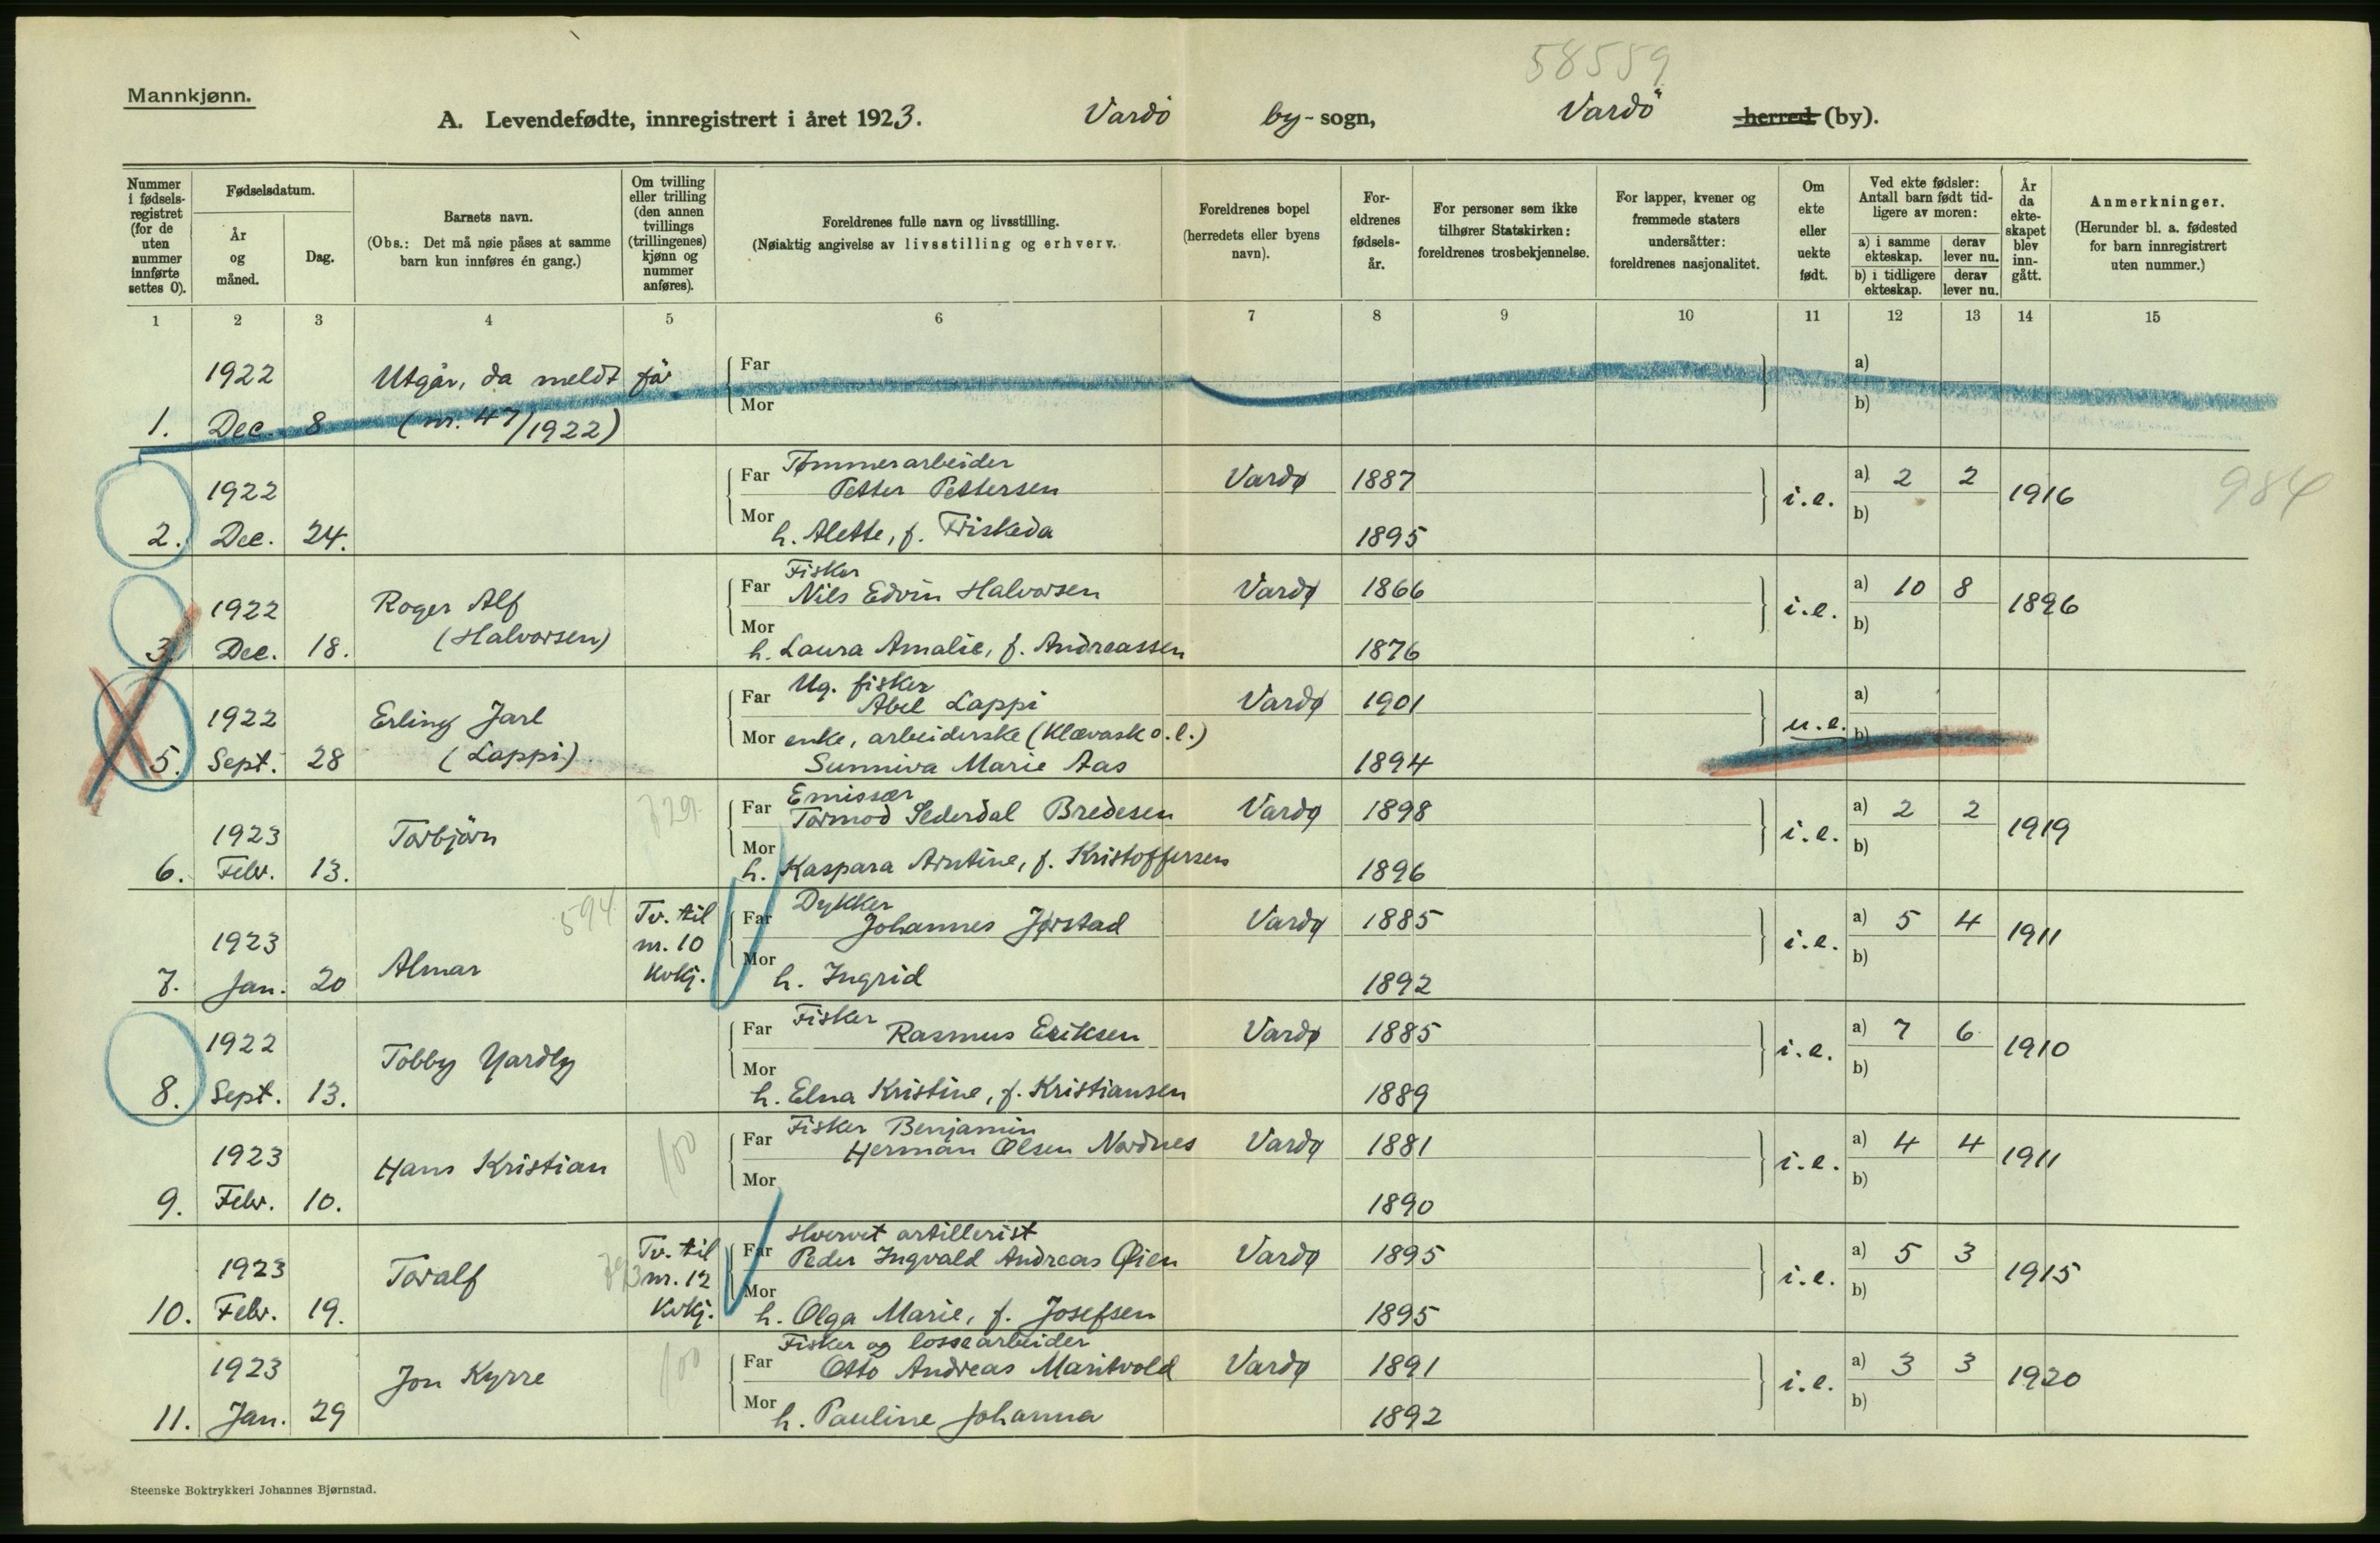 58559
Mannkjønn.
A. Levendefødte, innregistrert i året 1923. Vardö by-sogn, Vardö herred (by).
Nummer i fødsels-registret (for de uten nummer innførte settes 0).
Fødselsdatum.
År og måned.
Dag.
Barnets navn.
(Obs.: Det må nøie påses at samme barn kun innføres én gang.)
Om tvilling eller trilling (den annen tvillings (trillingenes) kjønn og nummer anføres).
Foreldrenes fulle navn og livsstilling.
(Nøiaktig angivelse av livsstilling og erhverv.
Foreldrenes bopel (herredets eller byens navn).
For-eldrenes fødsels-år.
For personer som ikke tilhører Statskirken: foreldrenes trosbekjennelse.
For lapper, kvener og fremmede staters undersåtter: foreldrenes nasjonalitet.
Om ekte eller uekte født.
Ved ekte fødsler: Antall barn født tid-ligere av moren:
a) i samme ekteskap.
derav lever nu.
b) i tidligere ekteskap.
derav lever nu.
År da ekte-skapet blev inn-gått.
Anmerkninger.
(Herunder bl. a. fødested for barn innregistrert uten nummer.)
1 2 3 4 5 6 7 8 9 10 11 12 13 14 15
1922 Utgår, da meldt før Far a)
1. Dec. 8 (nr. 47/1922) Mor b)
Tømmerarbeider
1922 Far Petter Pettersen Vardø 1887 i.e. a) 2 2 1916 984
2. Dec. 24. Mor h. Alette, f. Friskeda 1895 b)
Fisker
1922 Roger Alf Far Nils Edvin Halvorsen Vardø 1866 i.e. a) 10 8 1896
3. Dec. 18. (Halvorsen) Mor h. Laura Amalie, f. Andreassen 1876 b)
Ug. fisker
1922 Erling Jarl Far Abel Lappi Vardø 1901 u.e. a)
Mor enke, arbeiderske (Klævask o.l.) b)
5. Sept. 28 (Lappi) Sunniva Marie Aas 1894
Emissær
1923 Torbjörn Far Tormod Sederdal Bredesen Vardø 1898 i.e. a) 2 2 1919
6. Febr. 13. Mor h. Kaspara Arntine, f. Kristoffersen 1896 b)
594 Tv. til Dykker
1923 nr. 10 Far Johannes Jørstad Vardø 1885 i.e. a) 5 4 1911
7. Jan. 20 Almar Kvkj. Mor h. Ingrid 1892 b)
1922 Tobby Yardly Far Fisker Rasmus Eriksen Vardø 1885 i.e. a) 7 6 1910
8. Sept. 13. Mor h. Elna Kristine, f. Kristiansen 1889 b)
Fisker Benjamin
1923 Hans Kristian 100 Far Herman Olsen Nordnes Vardø 1881 i.e. a) 4 4 1911
9. Febr. 10. Mor 1890 b)
Tv. til Hvervet artillerist
1923 Toralf nr. 12 Far Peder Ingvald Andreas Øien Vardø 1895 i.e. a) 5 3 1915
10. Febr. 19. Kvkj. Mor h. Olga Marie, f. Josefsen 1895 b)
Fisker og lossearbeider
1923 Jon Kyrre 100 Far Otto Andreas Maritvold Vardø 1891 i.e. a) 3 3 1920
11. Jan. 29 Mor h. Pauline Johanna 1892 b)
Steenske Boktrykkeri Johannes Bjørnstad.